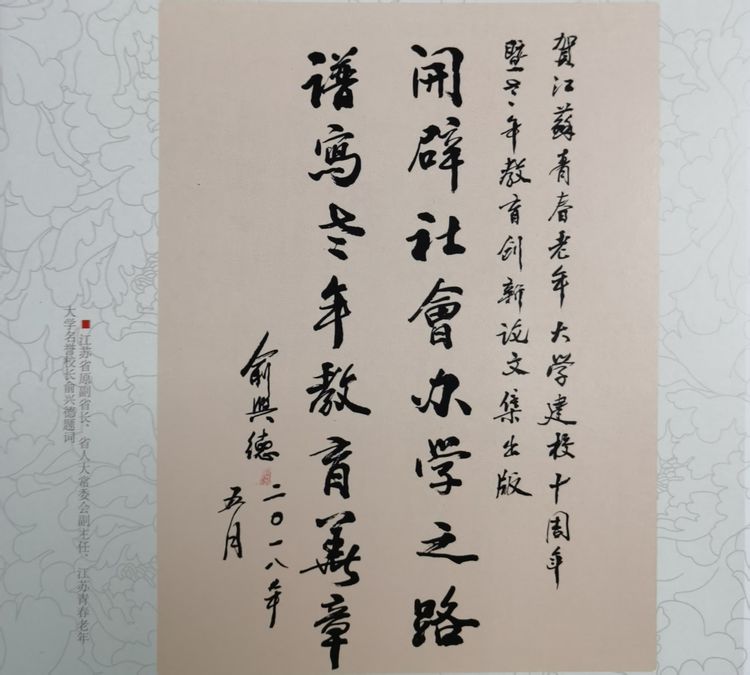 贺江蘇青春老年大学建校十周年
暨老年教育创新论文集出版
开辟社會办学之路
谱寫老年教育新章
俞興德
二〇一八年
五月
江苏省原副省长、省人大常委会副主任、江苏青春老年
大学名誉校长俞兴德题词